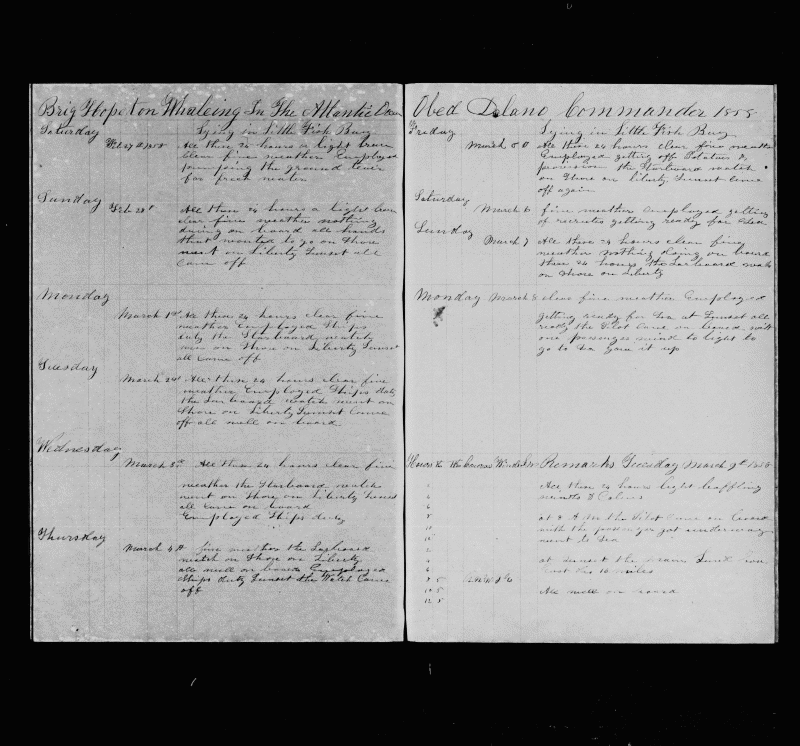 Brig Hopeton Whaleing In The Atlantic Ocean
Saturday Lying in Little Fish Bay
Feb 27th 1858 All these 24 hours a light breeze
clear fine weather Employed
pumping the ground tier
for fresh water
Sunday
Feb 28th All these 24 hours a light breeze
clear fine weather nothing
doing on board all hands
that wanted to go on shore
went on Liberty Sunset all
Came off
Monday
March 1st All these 24 hours clear fine
weather Employed Ships
duty the Starboard watch
was on Shore on Liberty Sunset
all Came off
Tuesday
March 2nd All these 24 hours clear fine
weather Employed Ships duty
the Larboard watch went on
Shore on Liberty Sunset Came
off all well on board
Wednesday
March 3rd All these 24 hours clear fine
weather the Starboard watch
went on Shore on Liberty Sunset
all Came on board
Employed Ships duty
Thursday
March 4th fine weather the Larboard
watch on Shore on Liberty
all well on board Employed
Ships duty Sunset the Watch Came
off
Obed Delano Commander 1858
Friday Lying in Little Fish Bay
March 5th All these 24 hours clear fine weather
Employed getting off Potatoes &
the Starboard watch
on Shore on Liberty Sunset Came
off again
Saturday
March 6 fine weather Employed getting
of recruites getting ready for Sea
Sunday
March 7 All these 24 hours clear fine
weather nothing doing on board
these 24 hours the Larboard watch
on Shore on Liberty
Monday March 8 clear fine weather Employed
getting ready for Sea at Sunset all
ready the Pilot Came on board with
one passenger wind to light to
go to Sea Gave it up
Hours K Courses Winds Remarks Tuesday March 9th 1858
All these 24 hours light baffling
winds & Calms
at 8 A M the Pilot Came on board
with the passenger got underway
went to Sea
at sunset the
16 miles
All well on board